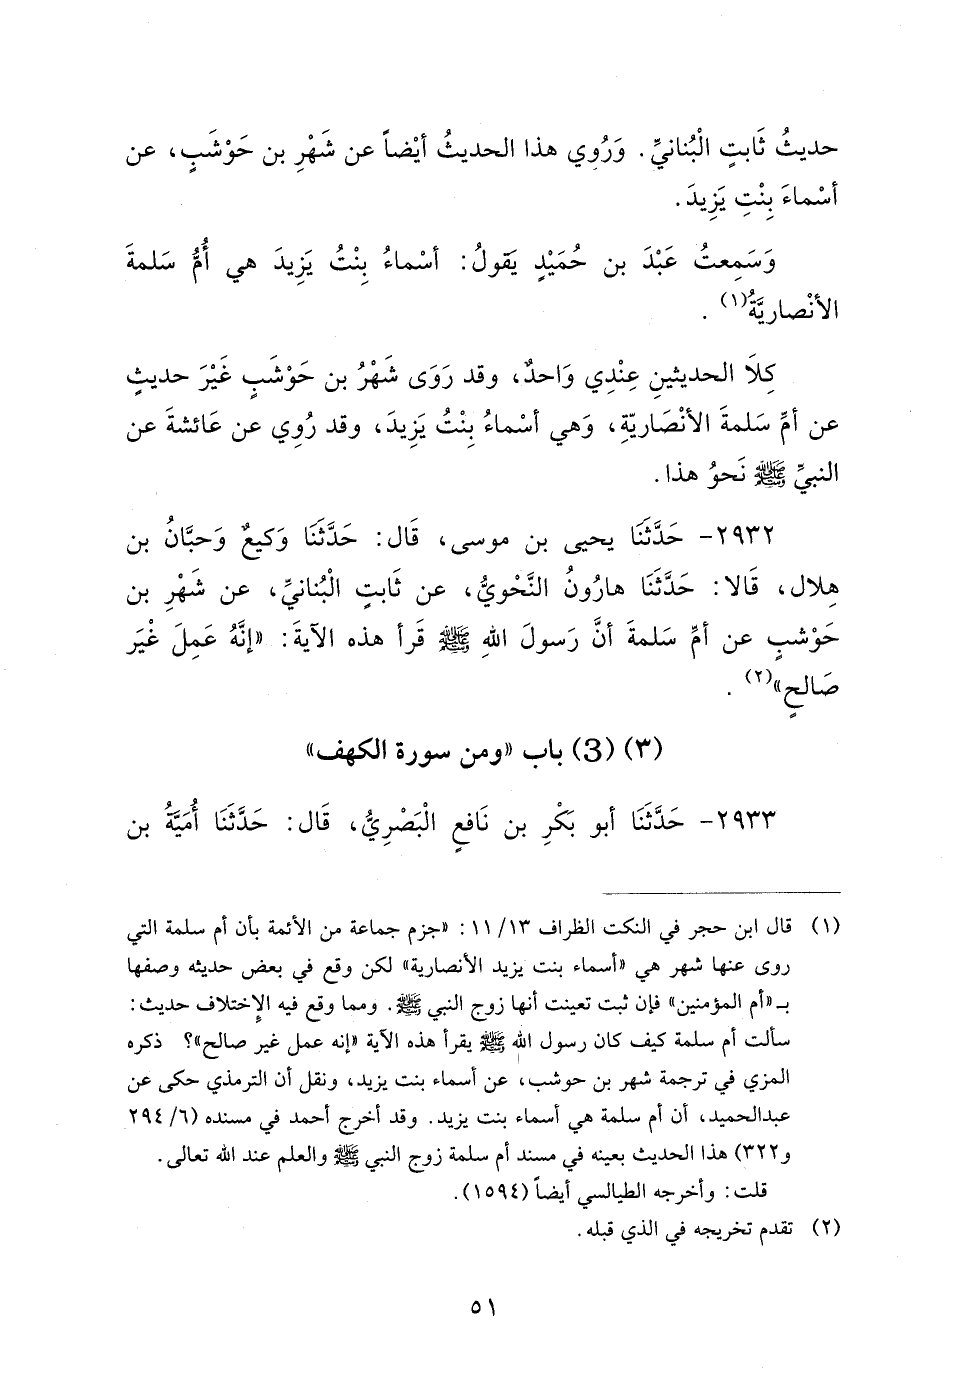 حديثُ ثَابتٍ الْبُنانيِّ. وَرُوِي هذا الحديثُ أيْضاً عن شَهْرِ بن حَوْشَبٍ، عن
أسْماءَ بِنْتِ يَزِيدَ.
وَسَمِعتُ عَبْدَ بن حُمَيْدٍ يَقولُ: أسْماءُ بِنْتُ يَزِيدَ هي أُمُّ سَلمةَ
الأنْصاريَّةُ(١).
كِلاَ الحديثينِ عِنْدِي وَاحدٌ، وقد رَوَى شَهْرُ بن حَوْشَبٍ غَيْرَ حديثٍ
عن أمِّ سَلمةَ الأنْصَاريّةِ، وَهي أسْماءُ بِنْتُ يَزِيدَ، وقد رُوِي عن عَائشةَ عن
النبيِّ ﷺ نَحوُ هذا.
٢٩٣٢- حَدَّثَنَا يحيى بن موسى، قَال: حَدَّثَنَا وَكيعٌ وَحبَّانُ بن
هِلال، قَالا: حَدَّثَنَا هارُونُ النَّحْويُّ، عن ثَابتٍ الْبُنانيِّ، عن شَهْرِ بن
حَوْشبٍ عن أمِّ سَلمةَ أنَّ رَسولَ اللهِ ﷺ قَرأ هذه الآيةَ: «إنَّهُ عَمِلَ غْيَرَ
صَالحٍ»(٢).
(٣) (3) باب «ومن سورة الكهف»
٢٩٣٣- حَدَّثَنَا أبو بَكْرِ بن نَافعٍ الْبَصْرِيُّ، قَال: حَدَّثَنَا أُمَيَّةُ بن
(١) قال ابن حجر في النكت الظراف ١٣/ ١١: «جزم جماعة من الأئمة بأن أم سلمة التي
روى عنها شهر هي «أسماء بنت يزيد الأنصارية» لكن وقع في بعض حديثه وصفها
بـ«أم المؤمنين» فإن ثبت تعينت أنها زوج النبي ﷺ. ومما وقع فيه الإختلاف حديث:
سألت أم سلمة كيف كان رسول الله ﷺ يقرأ هذه الآية «إنه عمل غير صالح»؟ ذكره
المزي في ترجمة شهر بن حوشب، عن أسماء بنت يزيد، ونقل أن الترمذي حكى عن
عبدالحميد، أن أم سلمة هي أسماء بنت يزيد. وقد أخرج أحمد في مسنده (٦/ ٢٩٤
و٣٢٢) هذا الحديث بعينه في مسند أم سلمة زوج النبي ﷺ والعلم عند الله تعالى.
قلت: وأخرجه الطيالسي أيضاً (١٥٩٤).
(٢) تقدم تخريجه في الذي قبله.
٥١